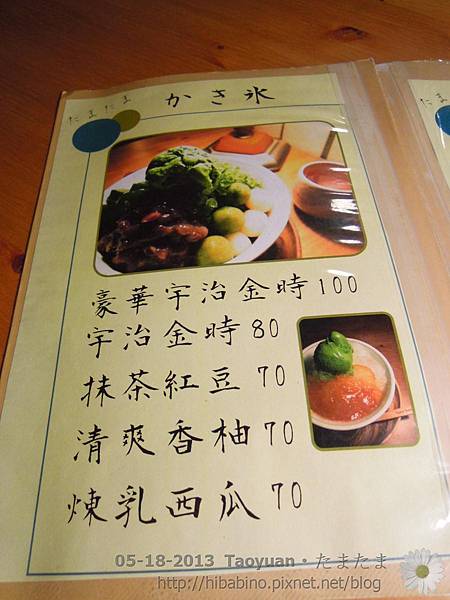 たまたま
かき氷
たま
豪華宇治金時100
宇治金時80
抹茶紅豆70
清爽香柚70
煉乳西瓜70
05-18-2013 Taoyuan・たまたま
http://hibabino.pixnet.net/blog